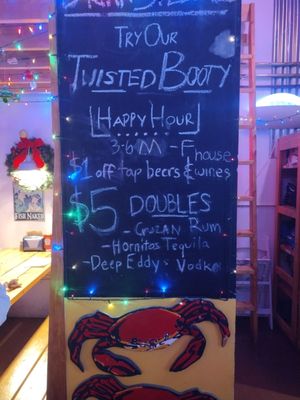 TRY OUR
TWISTED BOOTY
HAPPY HOUR
3-6 M-F
$1 off tap beers & house wines
$5 DOUBLES
- Cruzan Rum
- Hornitos Tequila
- Deep Eddy's Vodka
FISH NAKED